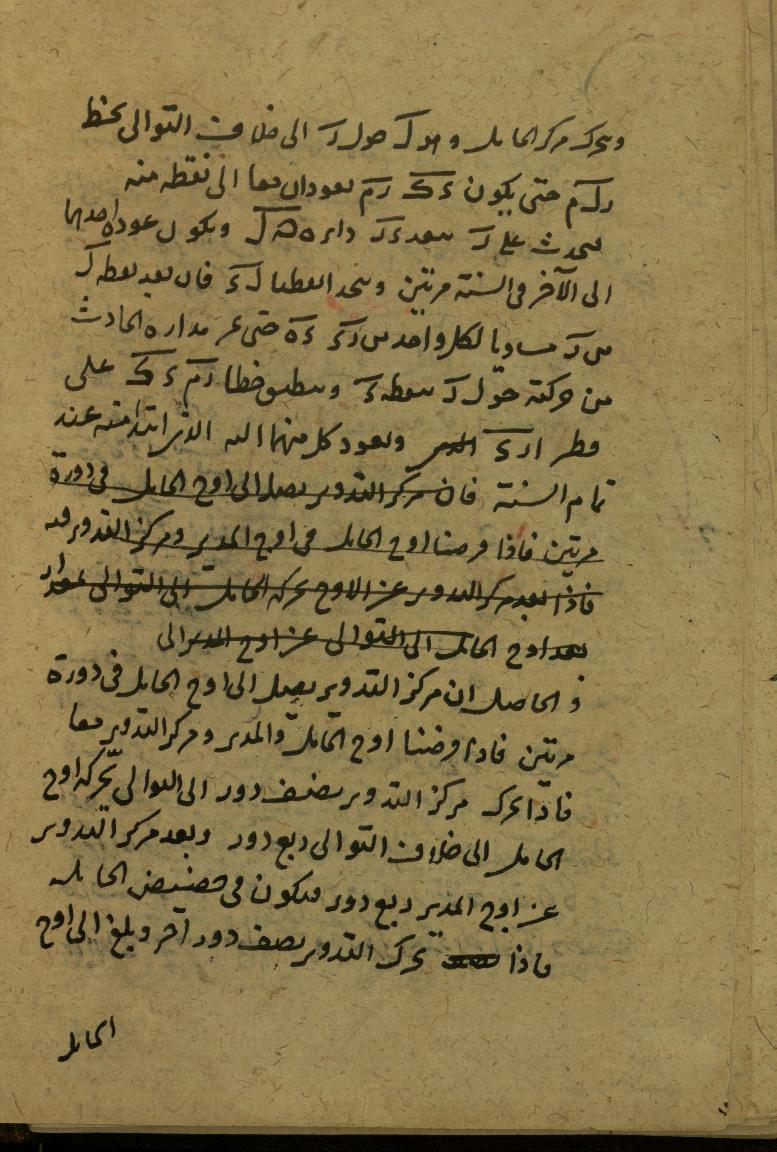 ويحرك مركز الحامل وهو ك حول ر الى خلاف التوالى بخط
رك م حتى يكون ء ك ر م يعودان معا الى نقطه منه
فيحدث على ر ببعد ء ر دايره ه ك ويكون عود احدهما
الى الآخر فى السنة مرتين ويتحد النقطتا ك ء فان بعد نقطه ك
من ر مساويا لكل واحد من ر ء ء ه حتى مر مداره الحادث
من حركته حول ر بنقطه ء وينطبق خطا ر م ء ك على
قطر ا ر ء ويعود كل منهما الى الذى ابتدا منه عند
تمام السنة فان مركز التدوير يصل الى اوج الحامل فى دورة
مرتين فاذا فرضنا اوج الحامل فى اوج المدير ومركز التدوير فيه
فاذا بعد مركز التدوير عن الاوج بحركة الحامل الى التوالى
بعد اوج الحامل الى التوالى عن اوج المدير الى
والحاصل ان مركز التدوير يصل الى اوج الحامل فى دورة
مرتين فاذا فرضنا اوج الحامل والمدير ومركز التدوير معا
فاذا تحرك مركز التدوير نصف دور الى التوالى تحرك اوج
الحامل الى خلاف التوالى ربع دور وبعد مركز التدوير
عن اوج المدير ربع دور فيكون فى حضيض الحامل
فاذا تحرك التدوير نصف دور آخر وبلغ الى اوج
الحامل